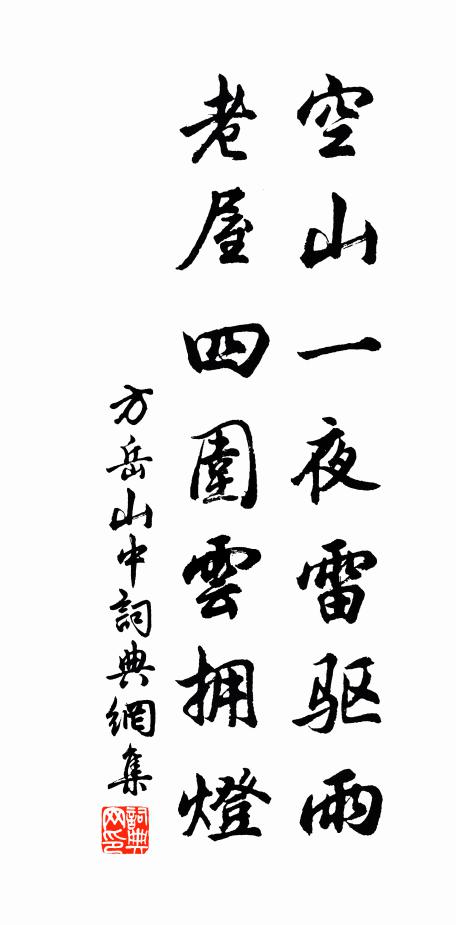 空山一夜雷驱雨
老屋四圍雲拥燈
方岳山中詞典網集
詞典
网印